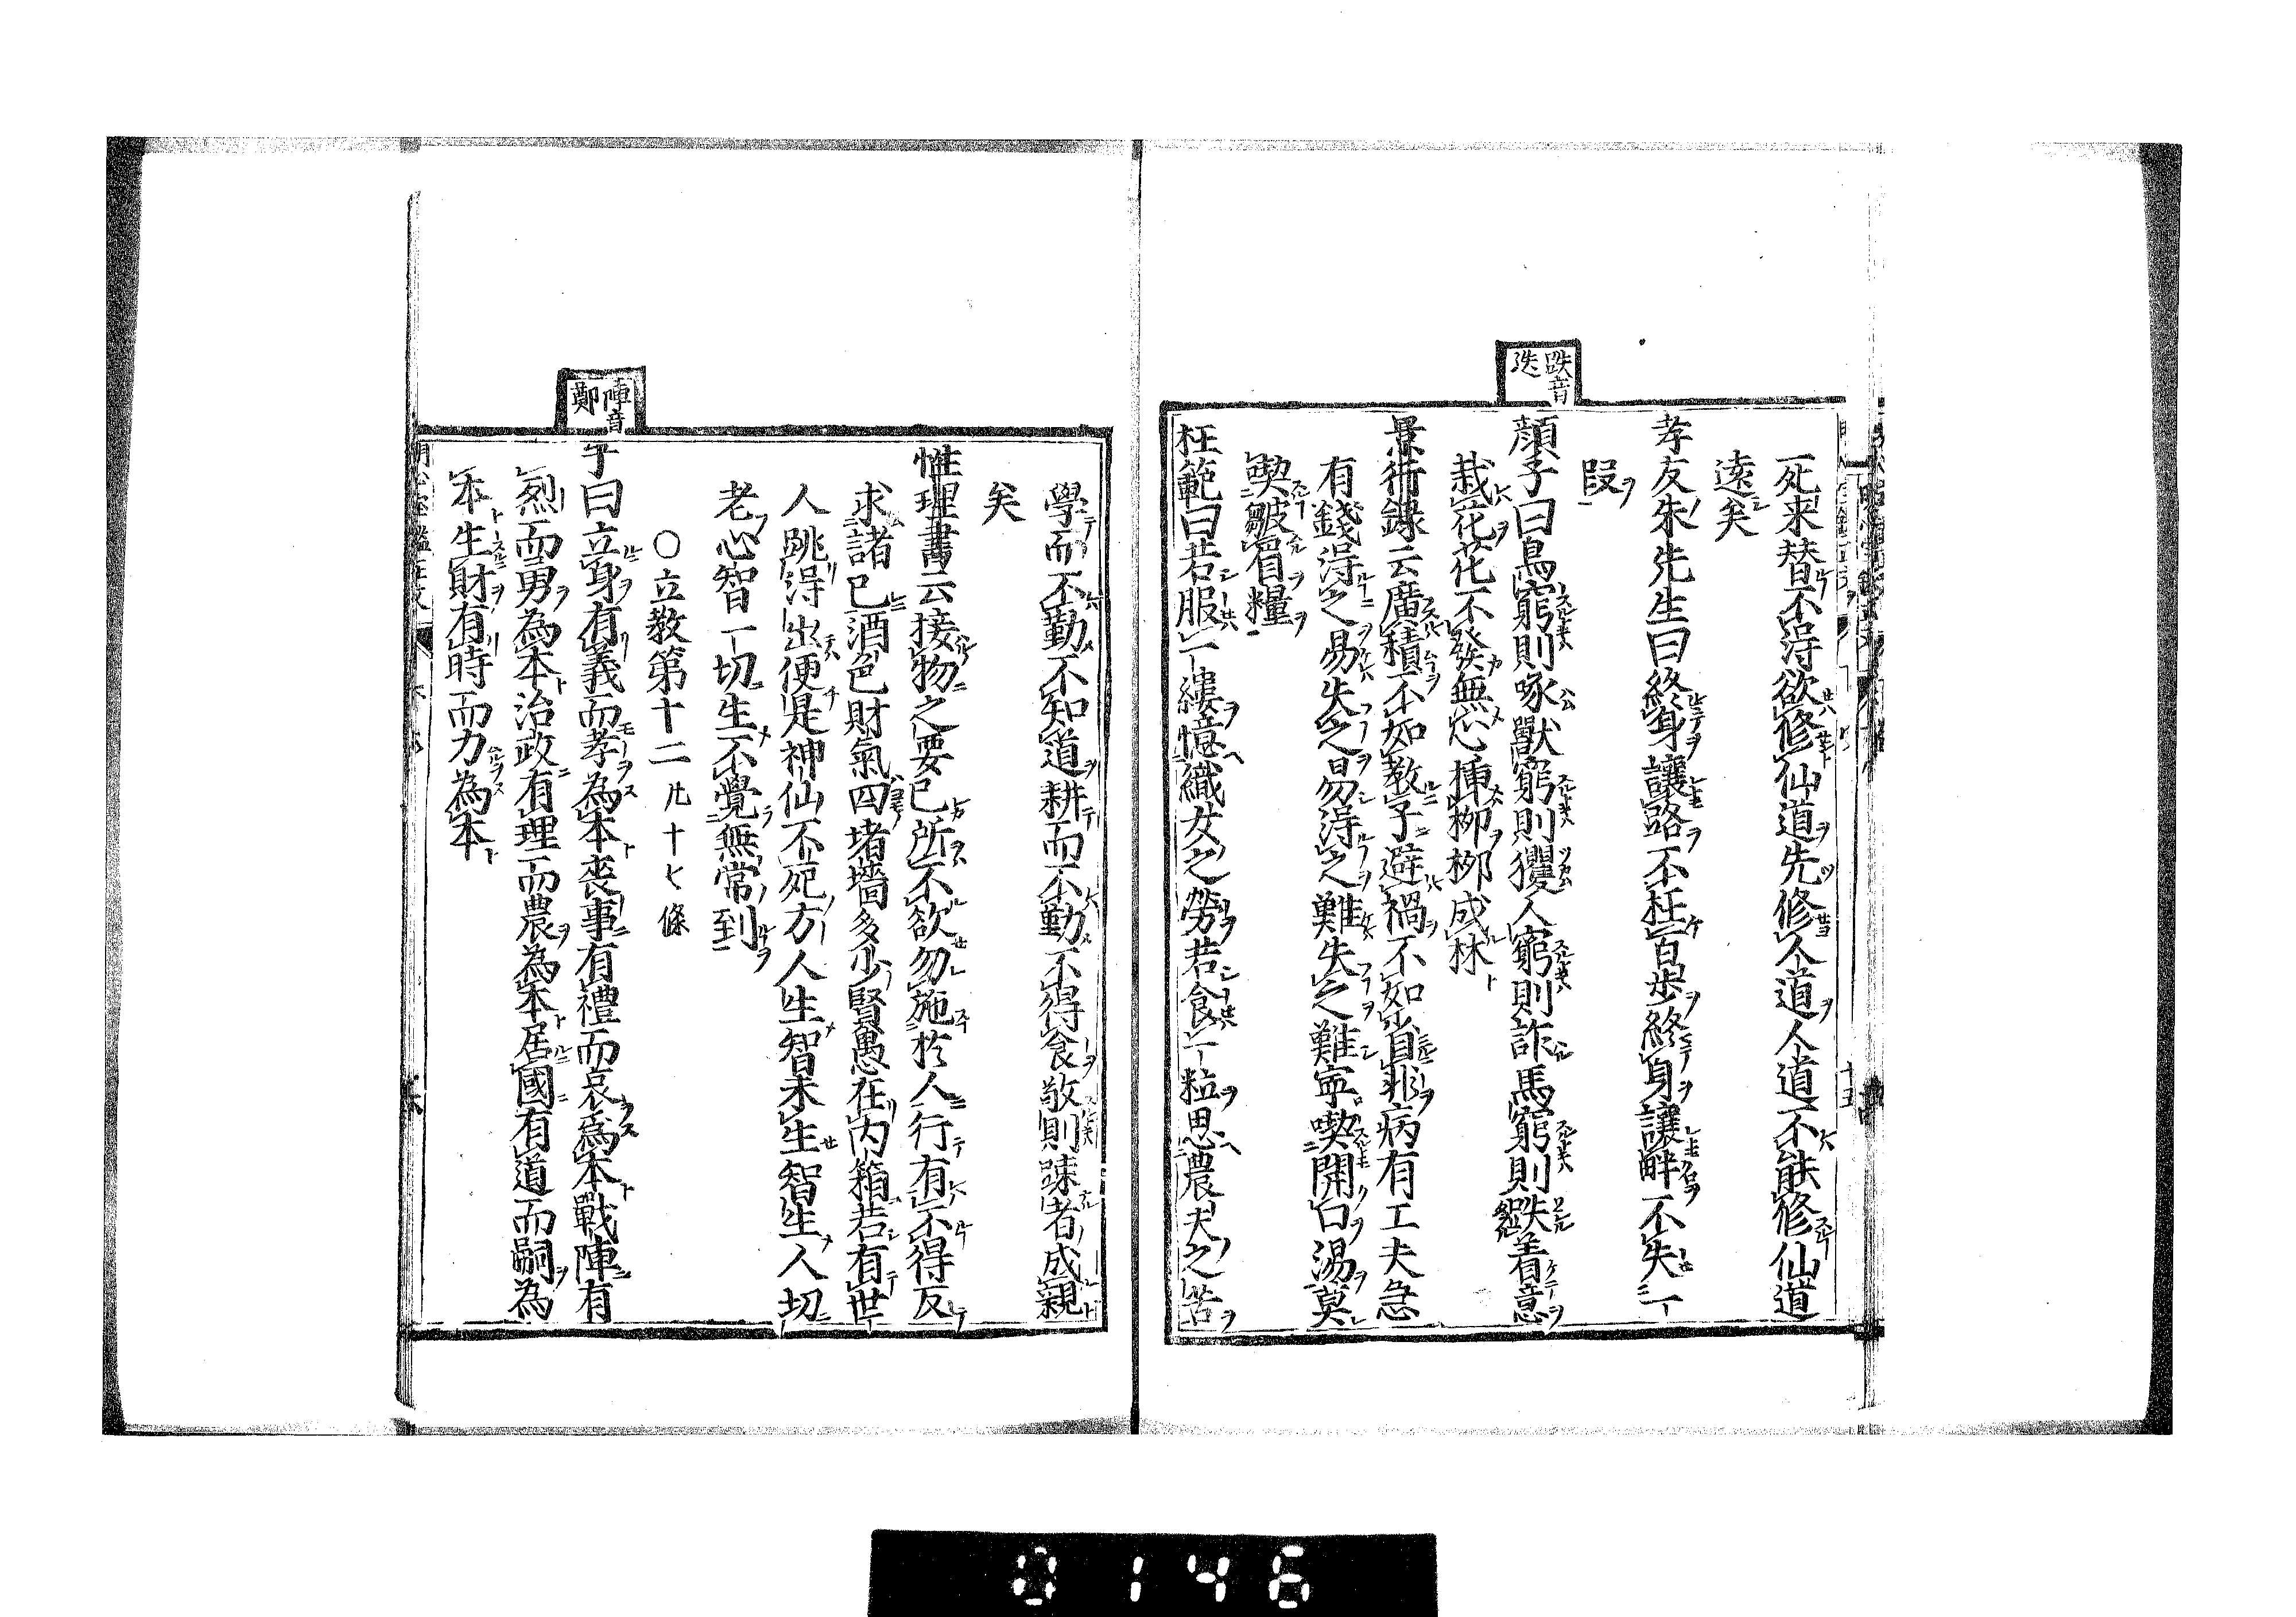 跌音
迭
死来替不得欲修仙道先修人道人道不能修仙道
遠矣
孝友朱先生曰終身讓路不枉百步終身讓畔不失一
段
顔子曰鳥窮則啄獸窮則攫人窮則詐馬窮則跌着意
栽花花不發無心揷栁栁成林
景行錄云廣積不如教子避禍不如省非病有工夫急
有錢得之易失之易得之難失之難寧喫開口湯莫
喫皺眉糧
枉範曰若服一縷憶織女之勞若食一粒思農夫之苦
陣音
鄭
學而不勤不知道耕而不勤不得食敬則踈者成親
矣
性理書云接物之要已所不欲勿施於人行有不得反
求諸已酒色財氣四堵墻多少賢愚在内箱若有世
人跳得出便是神仙不死方人生智未生智生人切
老心智一切生不覺無常到
〇立教第十二凡十七條
子曰立身有義而孝為本喪事有禮而哀爲本戰陣有
烈而勇為本治政有理而農為本居國有道而嗣為
本生財有時而力為本
0146